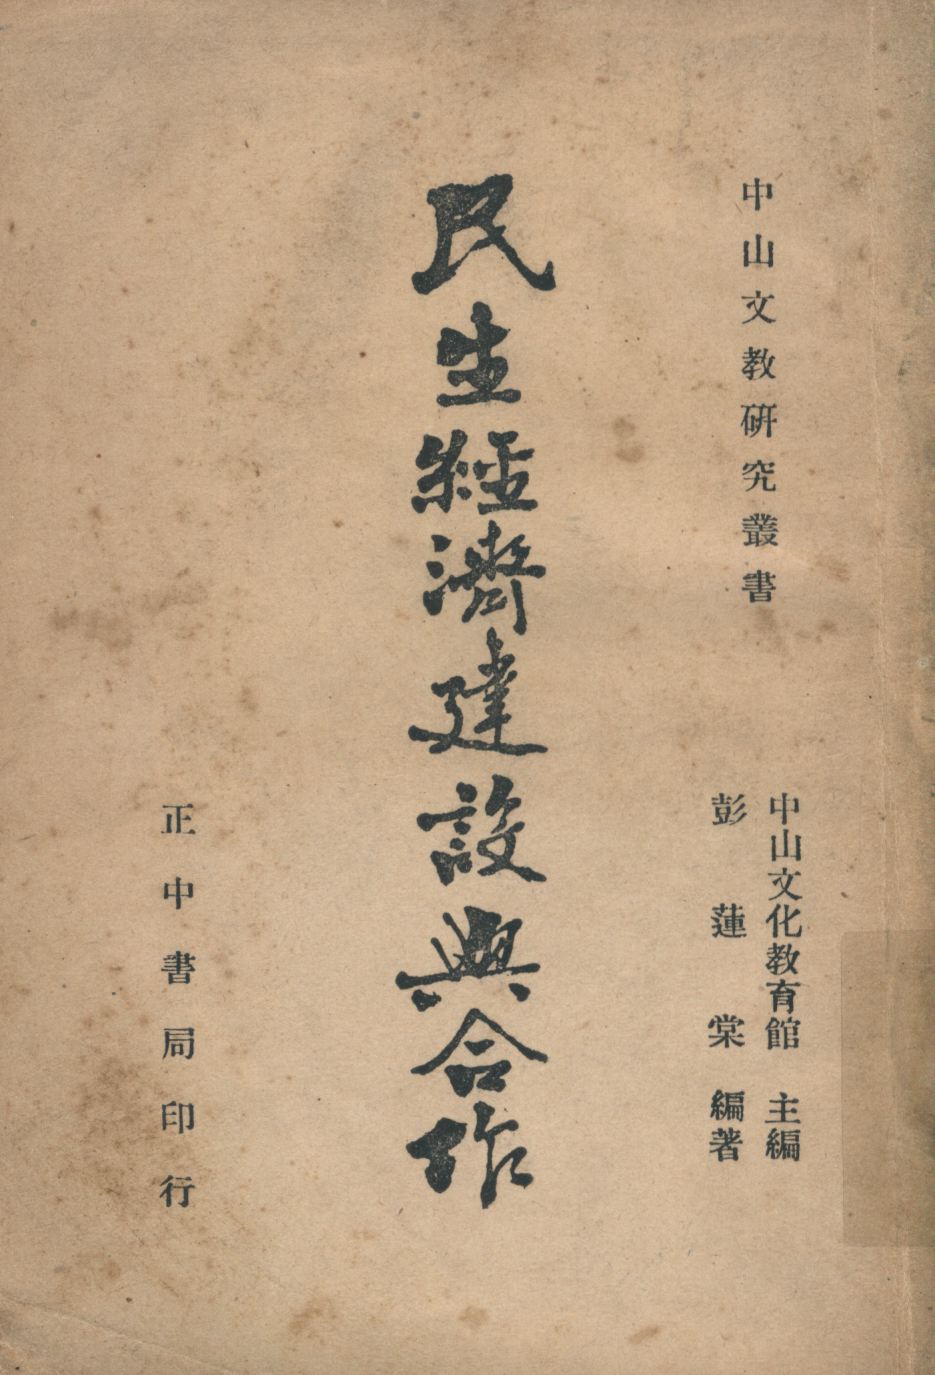 中山文教研究叢書
中山文化教育館 主編
彭蓮棠 編著
民生經濟建設與合作
正中書局印行